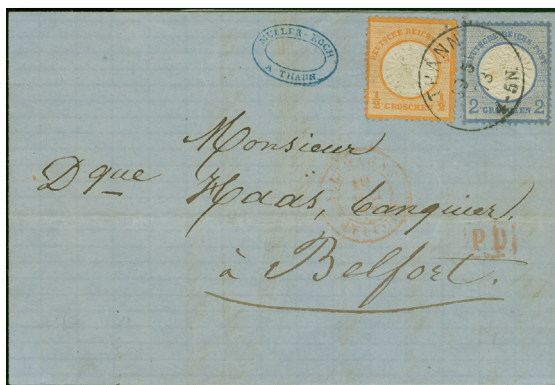 MULLER-KOCH
A THANN
DEUTSCHE REICHS-POST
½ GROSCHEN ½
DEUTSCHE REICHS-POST
2 GROSCHEN 2
THANN
5N
Monsieur
Dque Haäs, banquier,
BELFORT
P.D.
à Belfort.